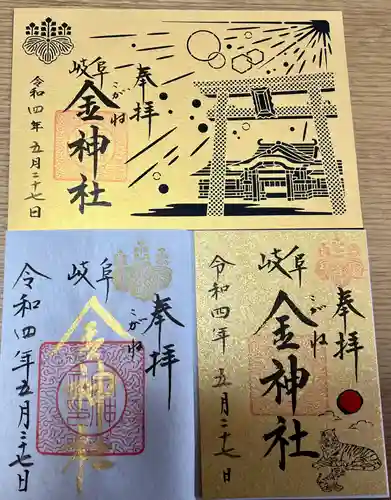 奉拝
岐阜
こがね
金神社
令和四年五月二十七日
奉拝
岐阜
こがね
金神社
令和四年五月二十七日
奉拝
岐阜
こがね
金神社
令和四年五月二十七日